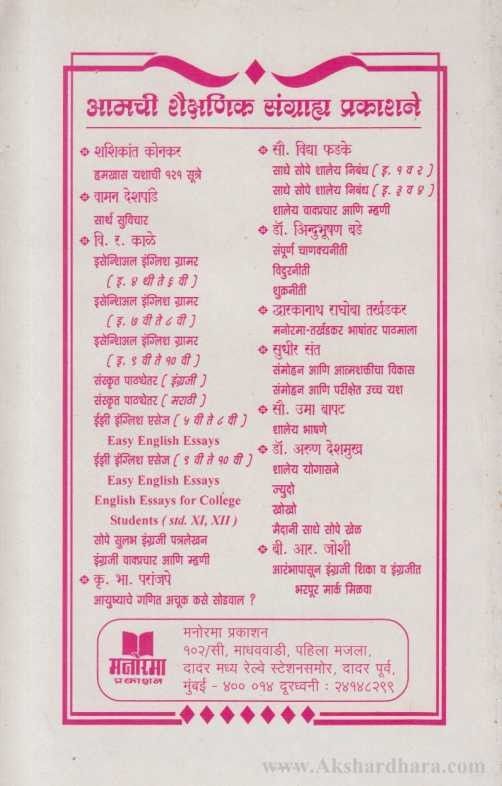 आमची शैक्षणिक संग्राह्य प्रकाशने
❖ शशिकांत कोनकर
हमखास यशाची १२१ सूत्रे
❖ वामन देशपांडे
सार्थ सुविचार
❖ वि. र. काळे
इसेन्शिअल इंग्लिश ग्रामर
( इ. ४ थी ते ६ वी )
इसेन्शिअल इंग्लिश ग्रामर
( इ. ७ वी ते ८ वी )
इसेन्शिअल इंग्लिश ग्रामर
( इ. ९ वी ते १० वी )
संस्कृत पाठ्येतर ( इंग्रजी )
संस्कृत पाठ्येतर ( मराठी )
ईझी इंग्लिश एसेज ( ५ वी ते ८ वी )
Easy English Essays
ईझी इंग्लिश एसेज ( ९ वी ते १० वी )
Easy English Essays
English Essays for College
Students ( std. XI, XII )
सोपे सुलभ इंग्रजी पत्रलेखन
इंग्रजी वाक्प्रचार आणि म्हणी
❖ कृ. भा. परांजपे
आयुष्याचे गणित अचूक कसे सोडवाल ?
❖ सौ. विद्या फडके
साधे सोपे शालेय निबंध ( इ. १ व २ )
साधे सोपे शालेय निबंध ( इ. ३ व ४ )
शालेय वाक्प्रचार आणि म्हणी
❖ डॉ. अिन्दुभूषण बडे
संपूर्ण चाणक्यनीती
विदुरनीती
शुक्रनीती
❖ द्वारकानाथ राघोबा तर्खडकर
मनोरमा-तर्खडकर भाषांतर पाठमाला
❖ सुधीर संत
संमोहन आणि आत्मशक्तीचा विकास
संमोहन आणि परीक्षेत उच्च यश
❖ सौ. उमा बापट
शालेय भाषणे
❖ डॉ. अरुण देशमुख
शालेय योगासने
ज्युदो
खोखो
मैदानी साधे सोपे खेळ
❖ बी. आर. जोशी
आरंभापासून इंग्रजी शिका व इंग्रजीत
भरपूर मार्क मिळवा
मनोरमा
प्रकाशन
मनोरमा प्रकाशन
१०२/सी, माधववाडी, पहिला मजला,
दादर मध्य रेल्वे स्टेशनसमोर, दादर पूर्व,
मुंबई - ४०० ०१४ दूरध्वनी : २४१४८२९९
www.Akshardhara.com